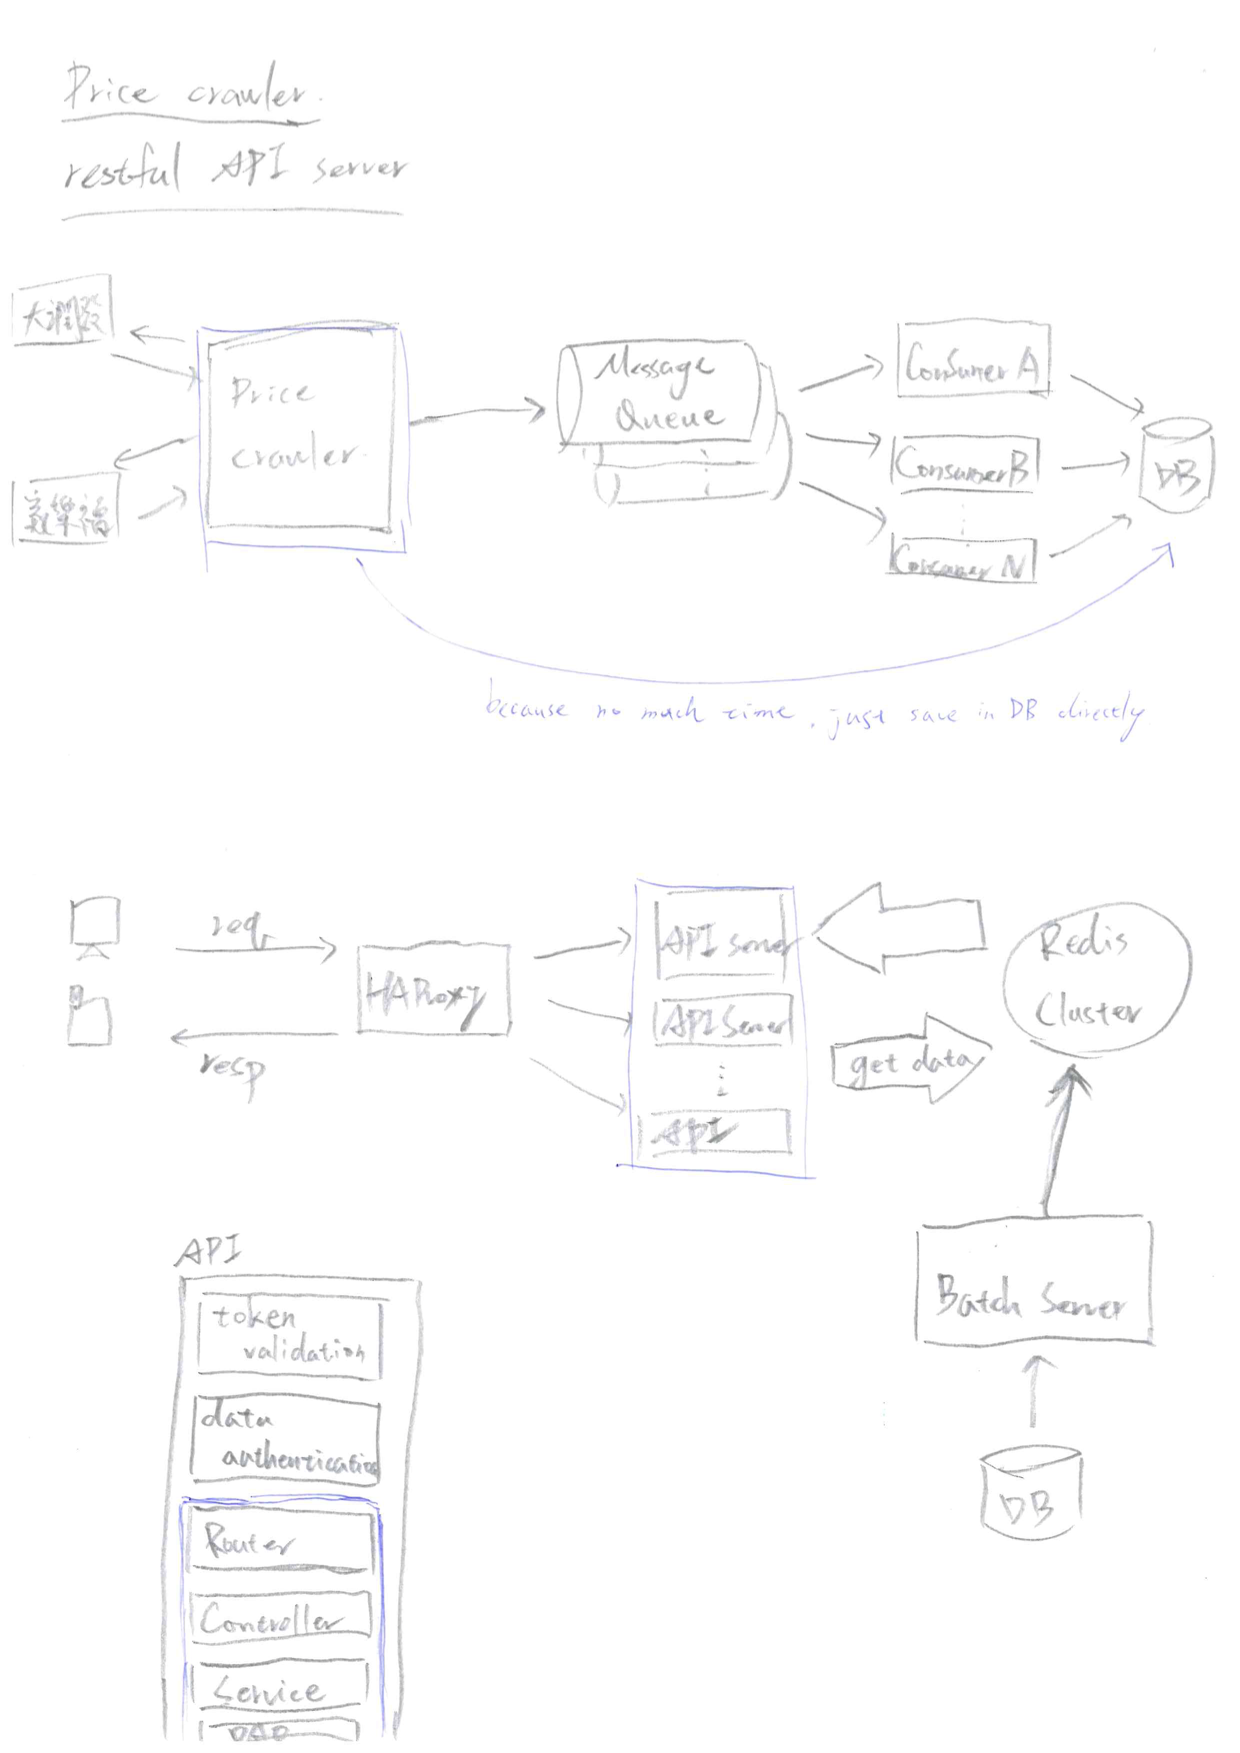 Price crawler.
restful API server
大潤發
Price
crawler.
家樂福
Message
Queue
Consumer A
Consumer B
Consumer N
DB
because no much time, just save in DB directly
req
resp
HAProxy
API server
API Server
API
get data
Redis
Cluster
Batch Server
DB
API
token
validation
data
authentication
Router
Controller
Service
DAO